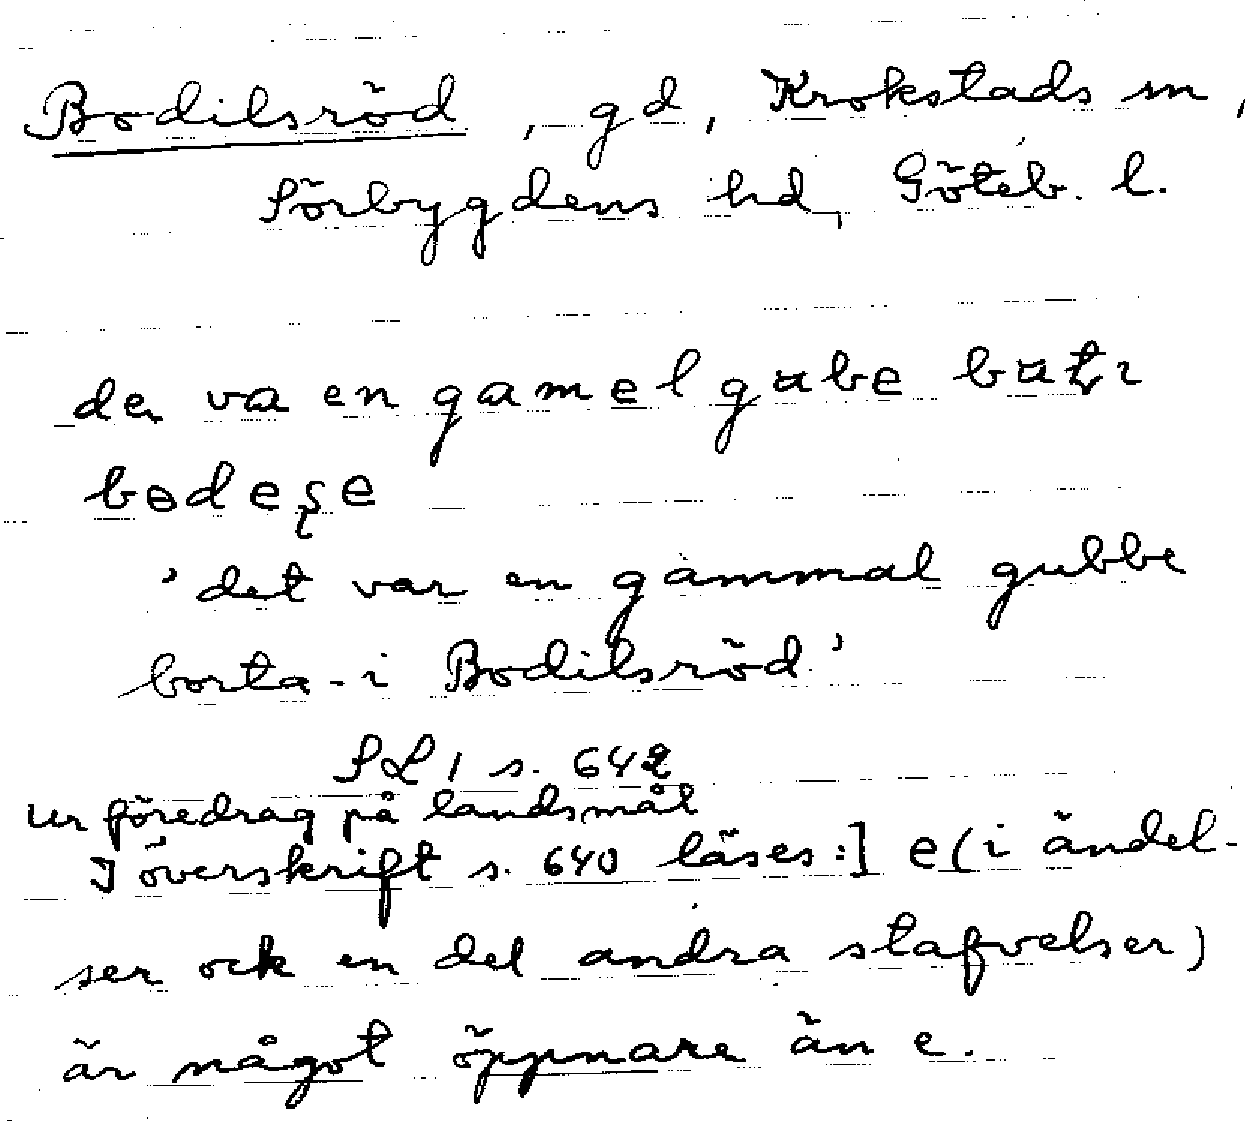 Bodilsröd, gd, Krokstads sn,
Sörbygdens hd, Göteb. l.
de va en gamel gube
bedeşe
'det var en gammal gubbe
borta-i Bodilsröd'
SL 1 s. 642
ur föredrag på landsmål
I överskrift s. 640 läses:] e (i ändel-
ser ock en del andra stafvelser)
är något öppnare än e.